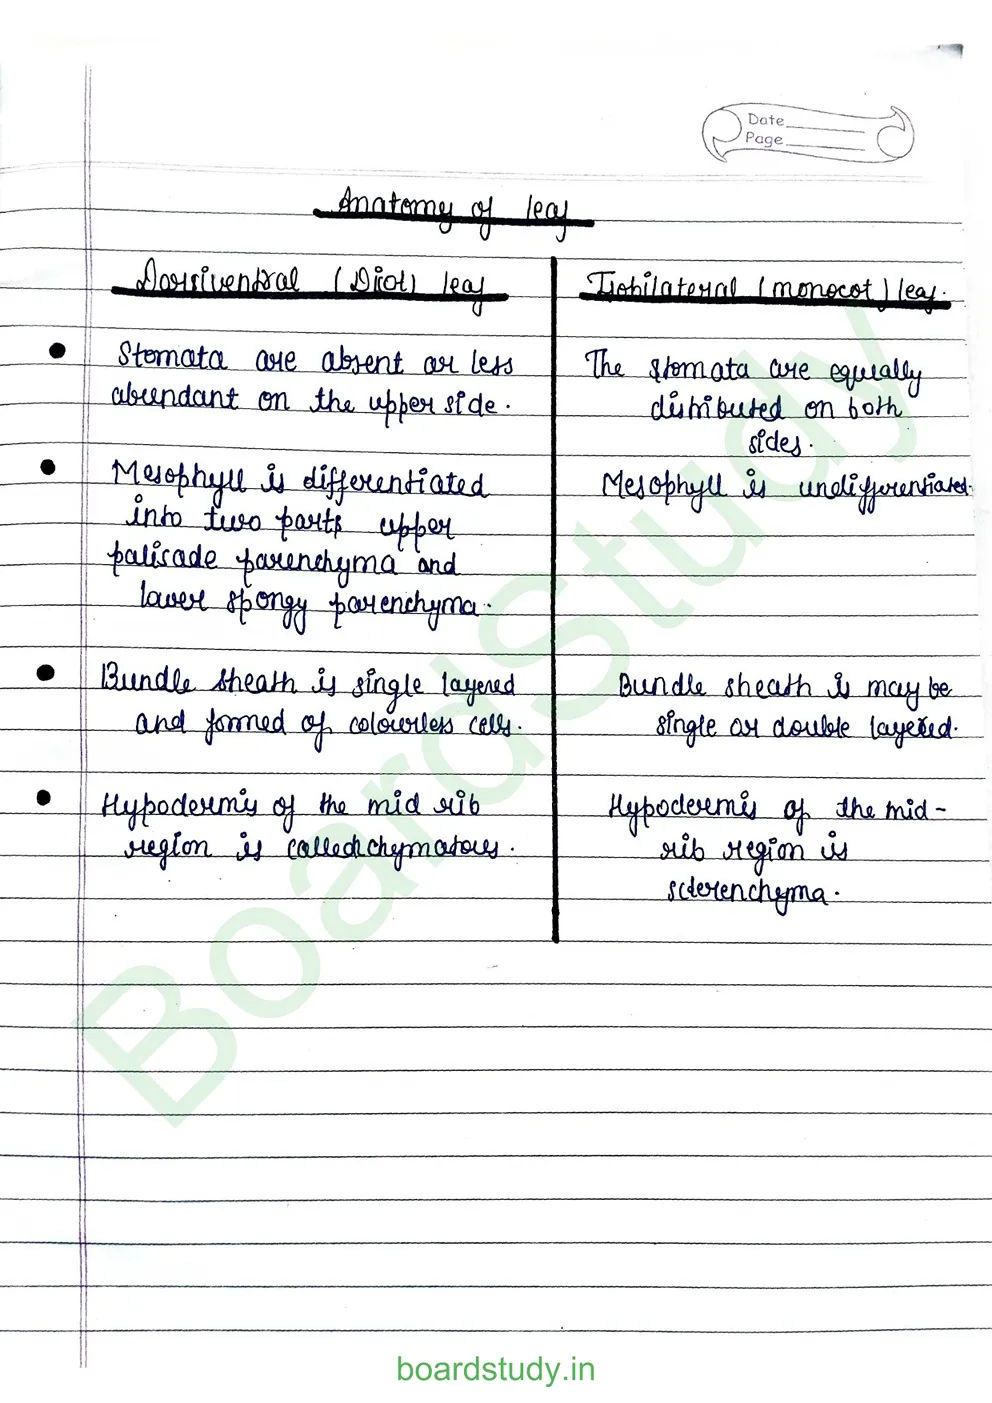 Date
Page
Anatomy of leaf
Dorsiventral (Dicot) leaf
Isobilateral (monocot) leaf.
Stomata are absent or less
abundant on the upper side.
The stomata are equally
distributed on both
sides.
Mesophyll is differentiated
into two parts upper
palisade parenchyma and
lower spongy parenchyma.
Mesophyll is undifferentiated.
Bundle sheath is single layered
and formed of colourless cells.
Bundle sheath is may be
single or double layered.
Hypodermis of the mid rib
region is
Hypodermis of the mid-
rib region is
sclerenchyma.
BoardStudy
boardstudy.in